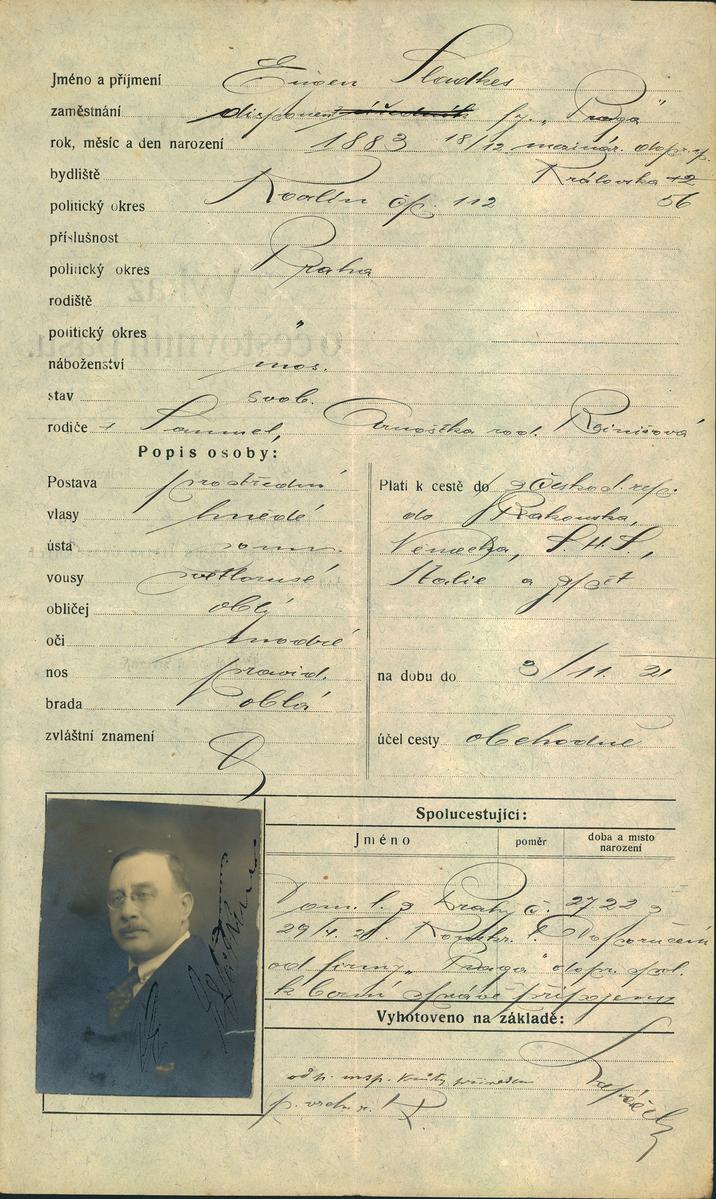 Jméno a příjmení Eugen Sladkes
zaměstnání disponent úředník fy. „Praga"
rok, měsíc a den narození 1883 18/12
bydliště Královská 42
politický okres Karlín čp. 112 56
příslušnost
politický okres Praha
rodiště
politický okres "
náboženství mos.
stav svob.
rodiče Samuel, Arnoštka roz.
Popis osoby:
Postava prostřední
vlasy hnědé
ústa
vousy světlorusé
obličej oblý
oči modré
nos pravid.
brada oblá
zvláštní znamení
Platí k cestě do z Českosl. rep.
do Rakouska,
Německa, S.H.S.,
Italie a zpět
na dobu do 3/11. 21
účel cesty obchodně
Spolucestující:
Jméno poměr doba a místo
narození
Dom. l. z Prahy č. 2722 z
29/4. 21. Doporučení
od firmy „Praga"
k berní správě připojeno
Vyhotoveno na základě: